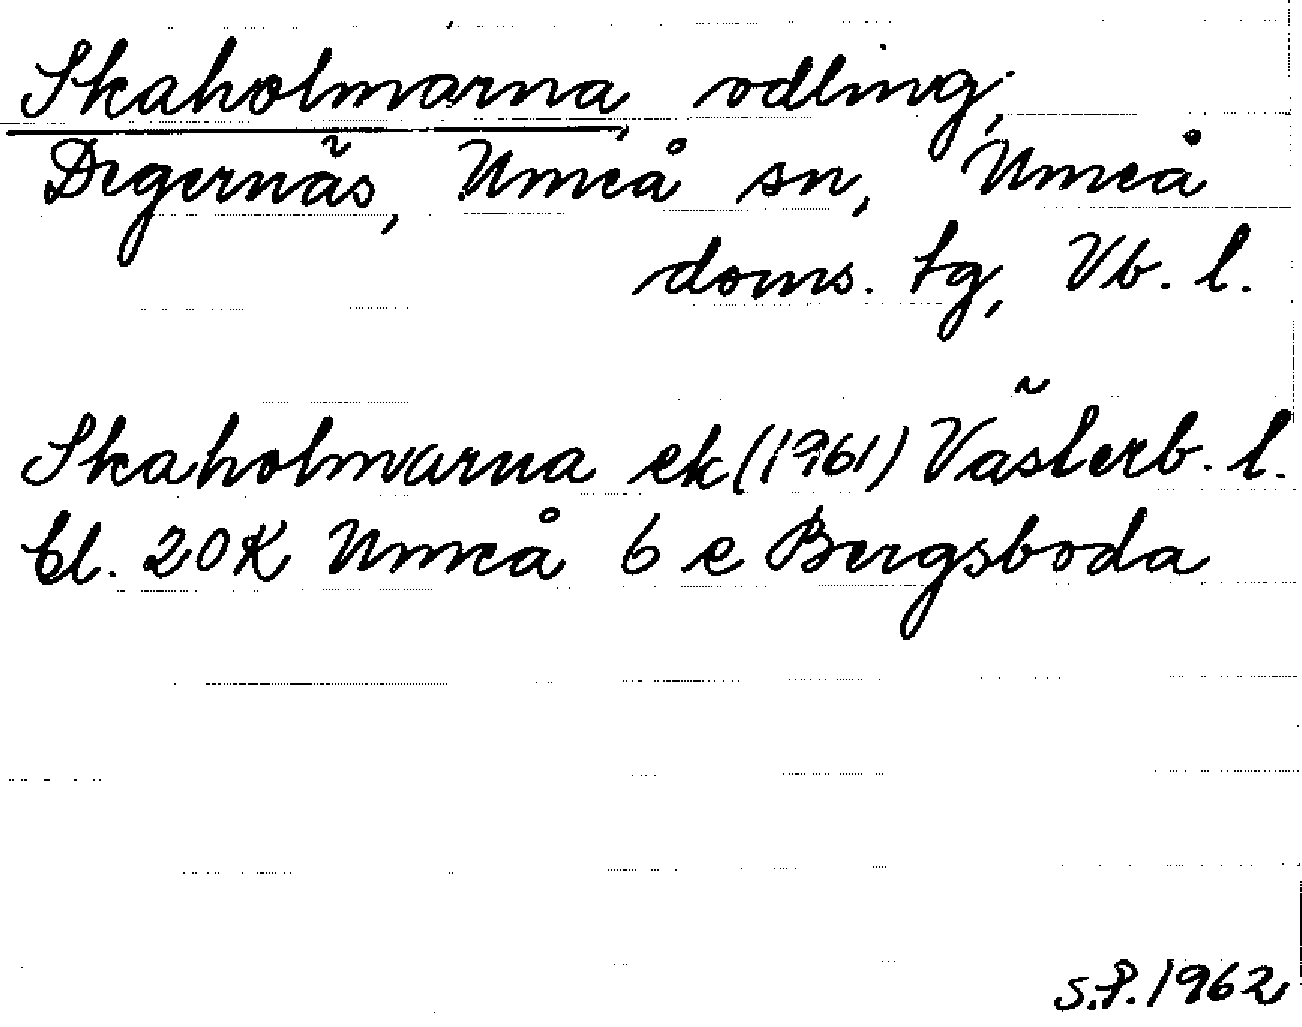 Skaholmarna, odling,
Degernäs, Umeå sn, Umeå
doms. tg, Vb. l.
Skaholmarna ek (1961) Västerb. l.
bl. 20K Umeå 6 e Bergsboda
S.P. 1962